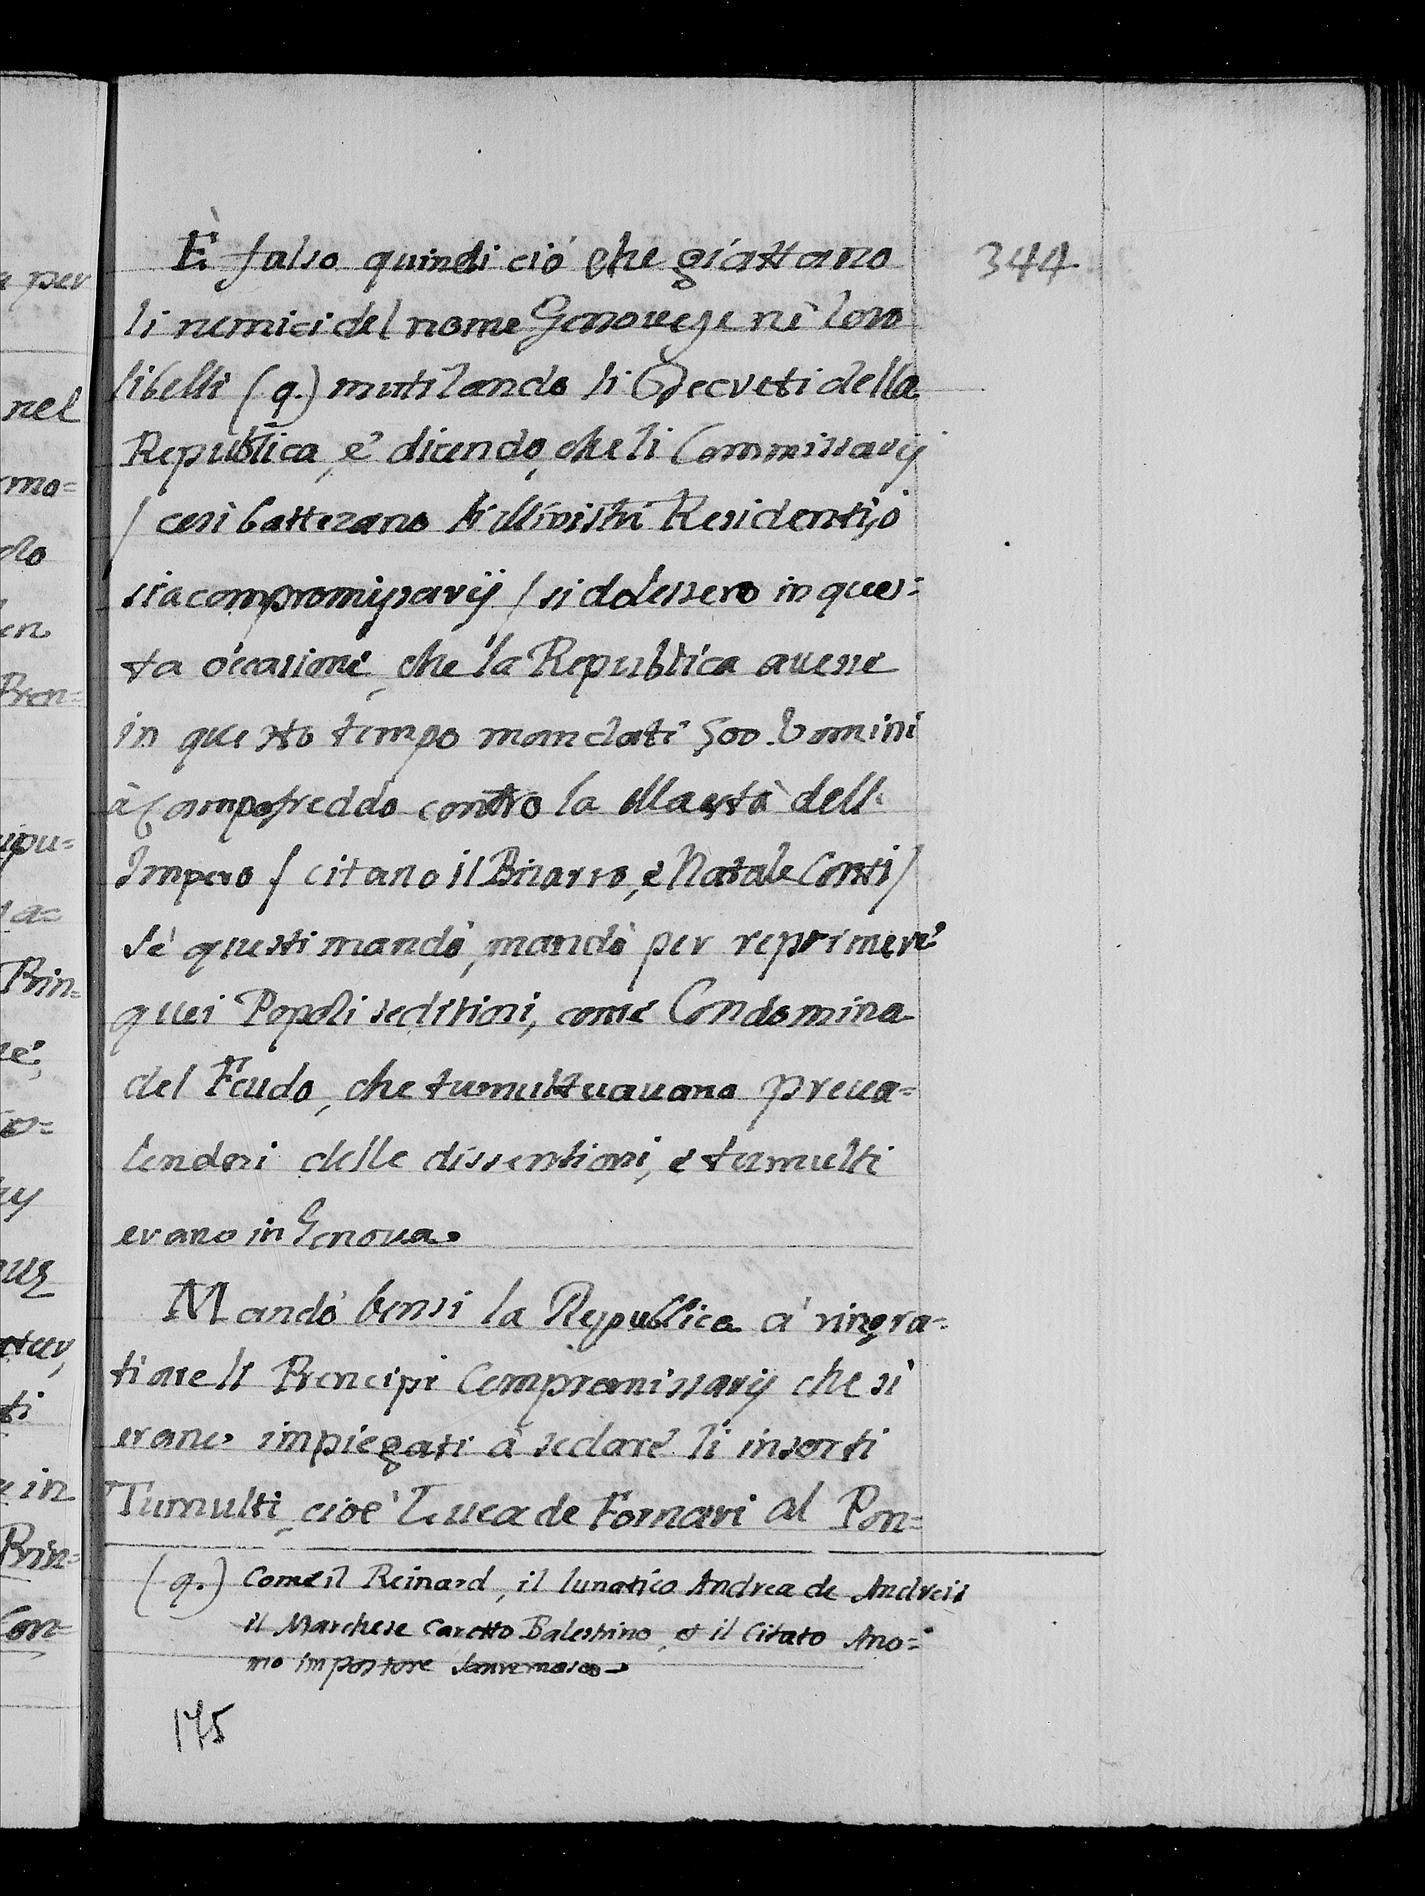 344
È falso quindi ciò che giattano
li nemici del nome Genouese nè loro
libelli (q.) mutilando li Decreti della
Republica, e' dicendo, che li Commissarij
/ cosi battezano li Ministri Residenti, ò
sia compromissarij / si dolessero in ques=
ta occasione, che la Republica auesse
in questo tempo mandati 500. Uomini
à Campofreddo contro la Maestà dell'
Impero / citano il Bizarro, e Natale Conti /
Se questi mandò, mandò per reprimere
quei Popoli seditiosi, come Condomina
del Feudo, che tumultuauano preua=
lendosi delle dissentioni, e tumulti
erano in Genoua.
Mandò bensi la Republica à ringra=
tiare li Prencipi Compromissarij che si
erano impiegati à sedare li insorti
Tumulti, cioè Luca de Fornari al Pon=
(q.) Come il Reinard, il lunatico Andrea de Andreis
il Marchese Caretto Balestrino, et il Citato Ano=
mo impostore Sanremasco
175
a per
nel
mo=
en
Pren=
ipu=
a=
Prin=
ti
in
Prin=
Con=